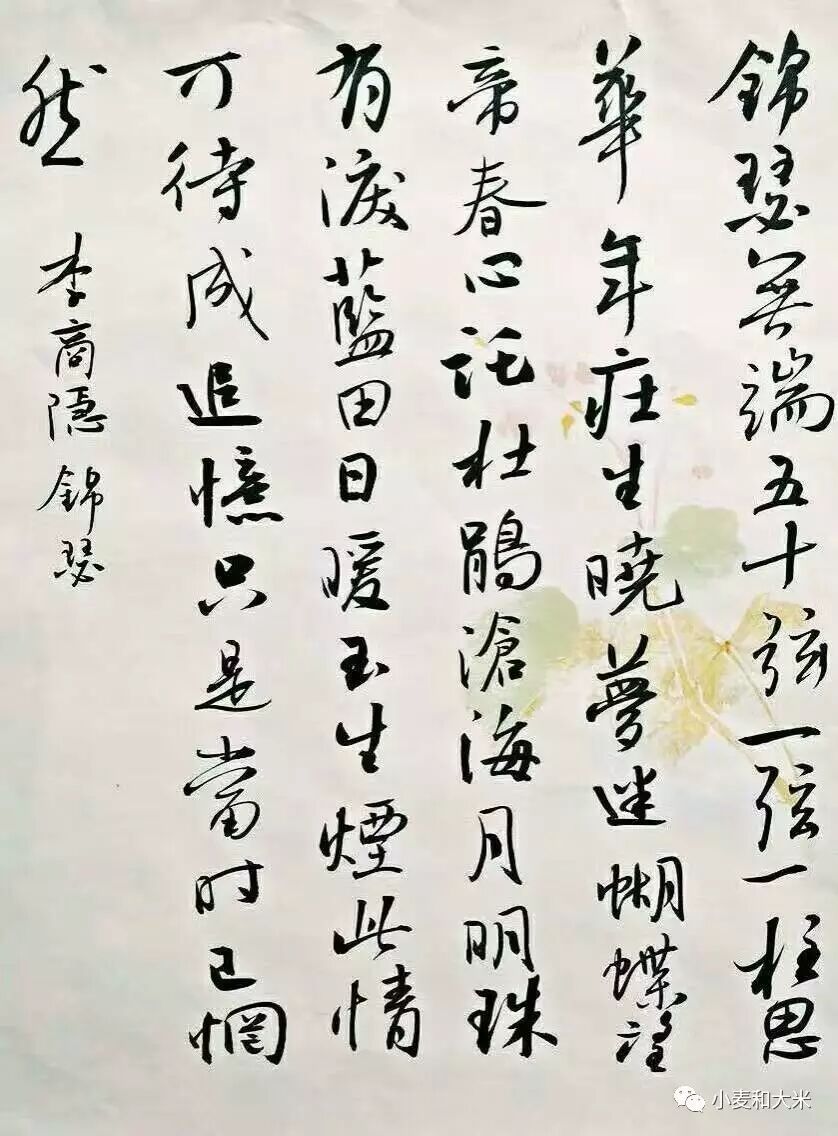 錦瑟無端五十弦一弦一柱思
華年莊生曉夢迷蝴蝶望
帝春心託杜鵑滄海月明珠
有淚藍田日暖玉生煙此情
可待成追憶只是當时已惘
然
李商隱錦瑟
小麦和大米